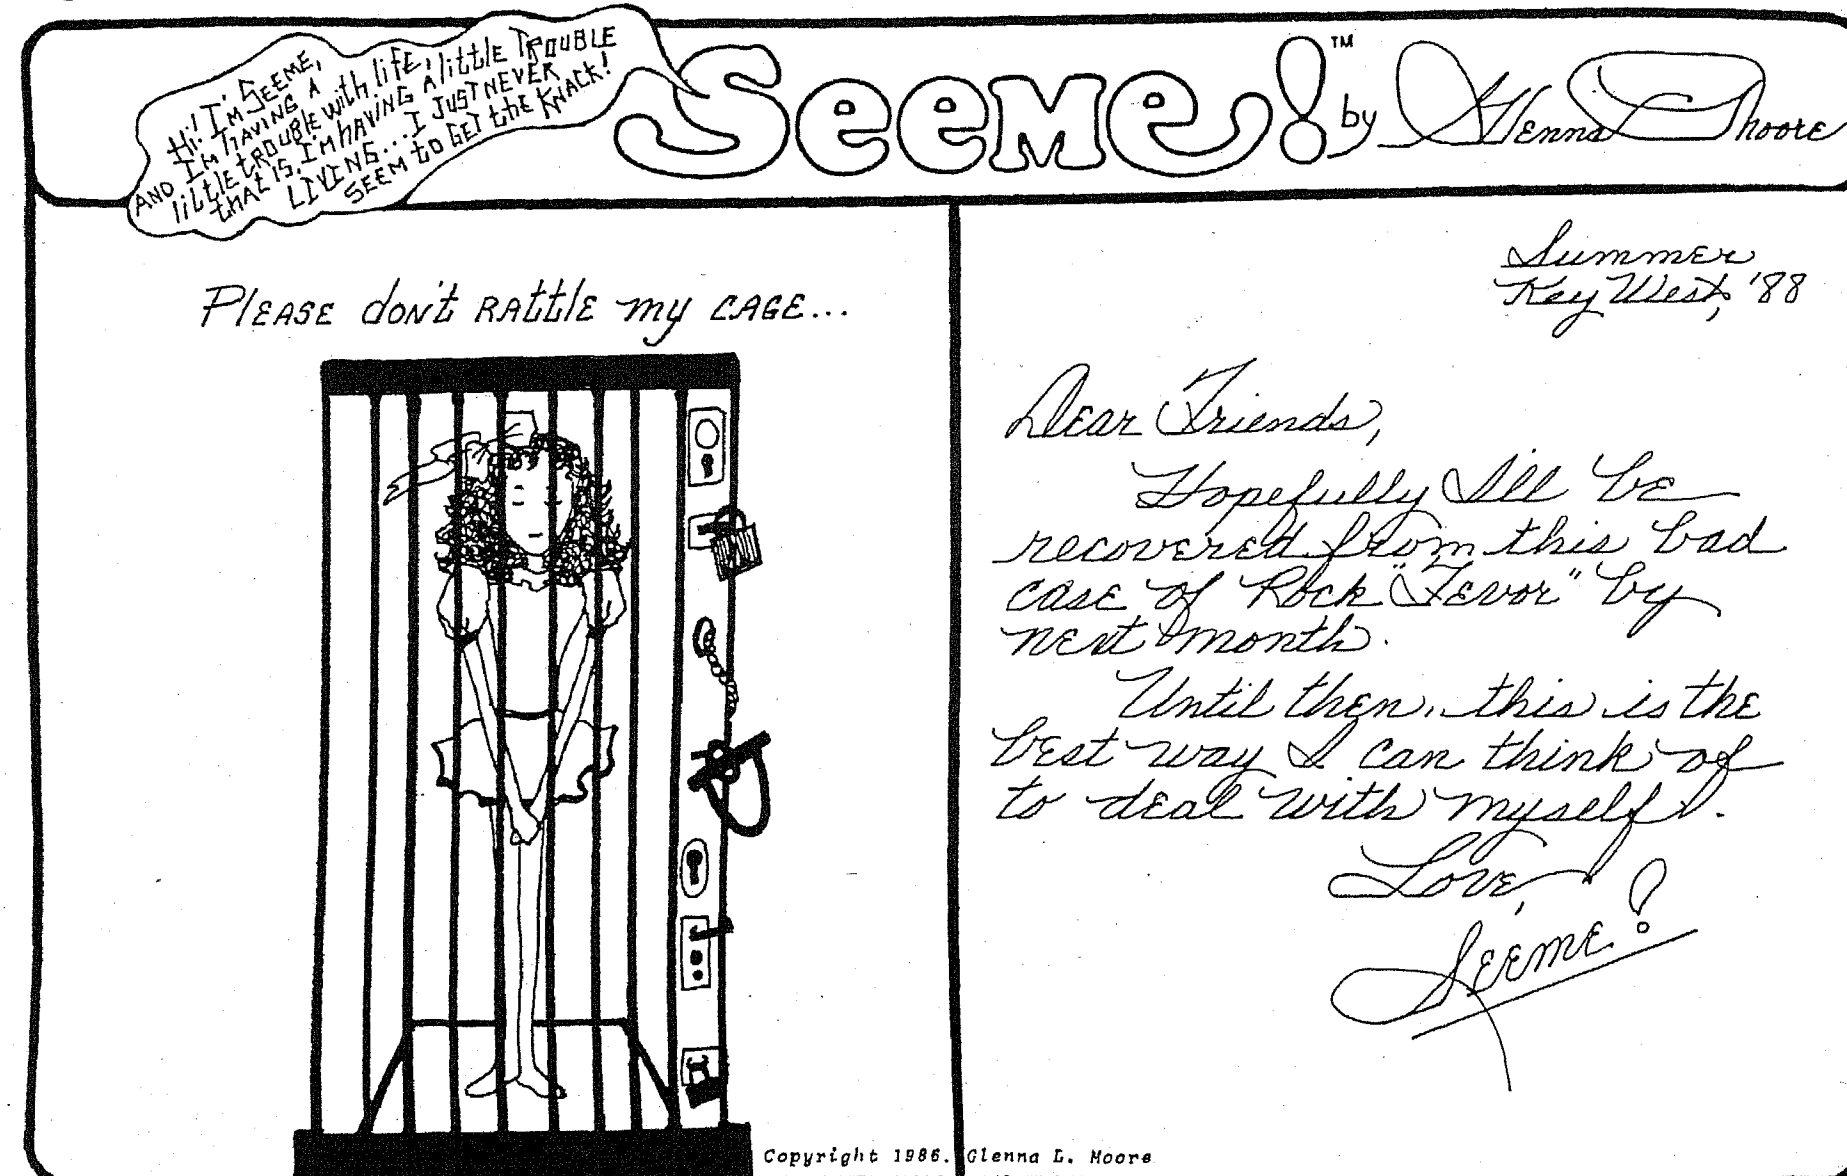 Hi! I'M SEEME,
AND I'M HAVING A
little tROUBLE with life,
that is. I'm HAVING A little TROUBLE
LIVING... I JUST NEVER
SEEM to GET the KNACK!
Seeme!™ by Glenna Moore
PlEASE don't RAttlE my CAGE...
Summer
Key West, '88
Dear Friends,
Hopefully I'll be
recovered from this bad
case of Rock "Fevor" by
next month.
Until then, this is the
best way I can think of
to deal with myself.
Love,
Seeme!
Copyright 1986. Glenna L. Moore